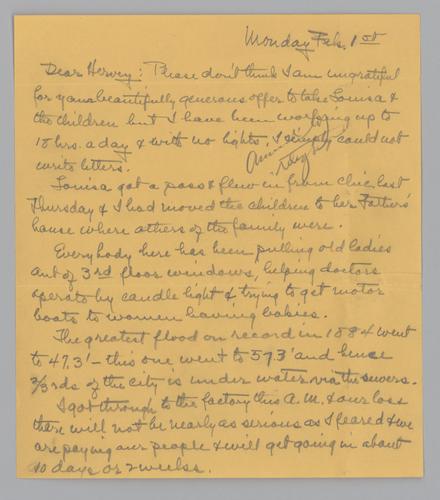 Monday Feb. 1st
Dear Hervey: Please don't think I am ungrateful
for your beautifully generous offer to take Louisa &
the children but I have been working up to
18 hrs. a day & with no lights, I simply could not
write letters.
Louisa got a pass & flew in from Chic. last
Thursday & I had moved the children to her Father's
house where others of the family were.
Everybody here has been pulling old ladies
out of 3rd floor windows, helping doctors
operate by candle light & trying to get motor
boats to women having babies.
The greatest flood on record in 1884 went
to 47.3' – this one went to 57.3' and hence
2/3rds of the city is under water via the sewers.
I got through to the factory this A.M. & our loss
there will not be nearly as serious as I feared & we
are paying our people & will get going in about
10 days or 2 weeks.